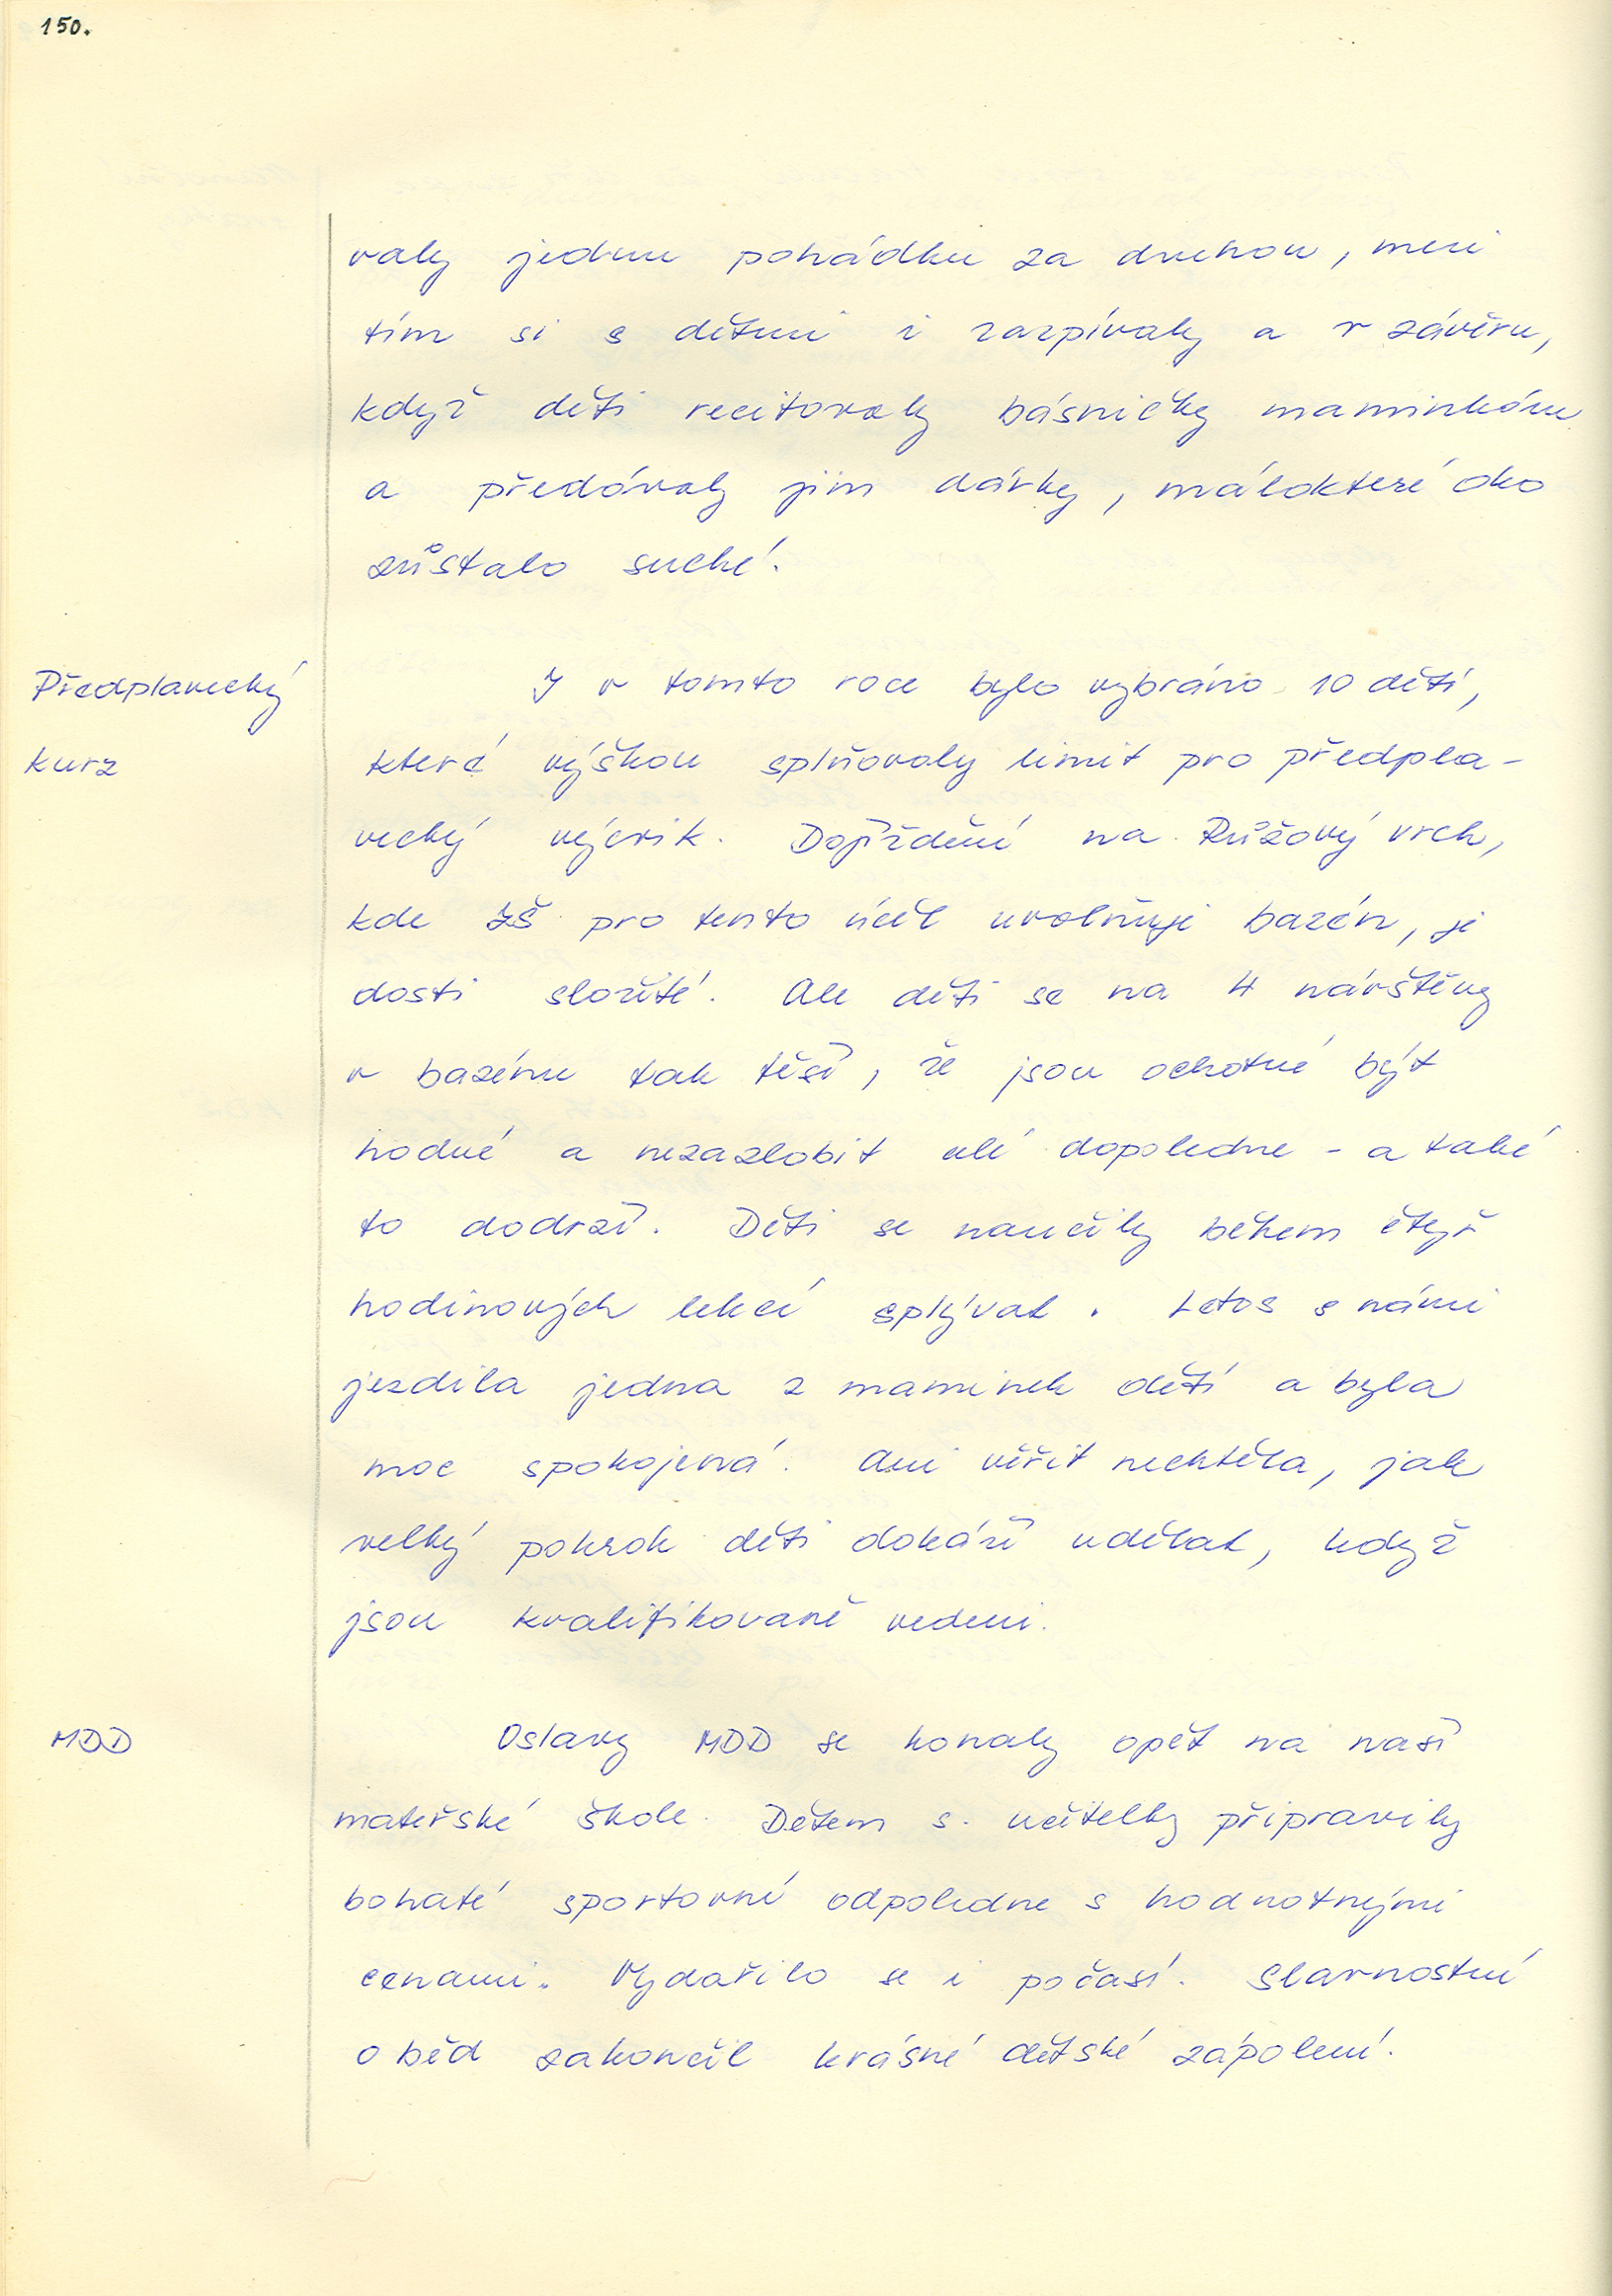 150.
valy jednu pohádku za druhou, mezi
tím si s dětmi i zazpívaly a v závěru,
když děti recitovaly básničky maminkám
a předávaly jim dárky, málokteré oko
zůstalo suché.
Předplavecký
kurz
I v tomto roce bylo vybráno 10 dětí,
které výškou splňovaly limit pro předpla-
vecký výcvik. Dojíždění na Růžový vrch,
kde ZŠ pro tento účel uvolňuje bazén, je
dosti složité. Ale děti se na 4 návštěvy
v bazénu tak těší, že jsou ochotné být
hodné a nezazlobit celé dopoledne - a také
to dodrží. Děti se naučily během čtyř
hodinových lekcí splývat. Letos s námi
jezdila jedna z maminek dětí a byla
moc spokojená. Ani věřit nechtěla, jak
velký pokrok děti dokáží udělat, když
jsou kvalifikovaně vedeni.
MDD
Oslavy MDD se konaly opět na naší
mateřské škole. Dětem s. učitelky připravily
bohaté sportovní odpoledne s hodnotnými
cenami. Vydařilo se i počasí. Slavnostní
oběd zakončil krásné dětské zápolení.